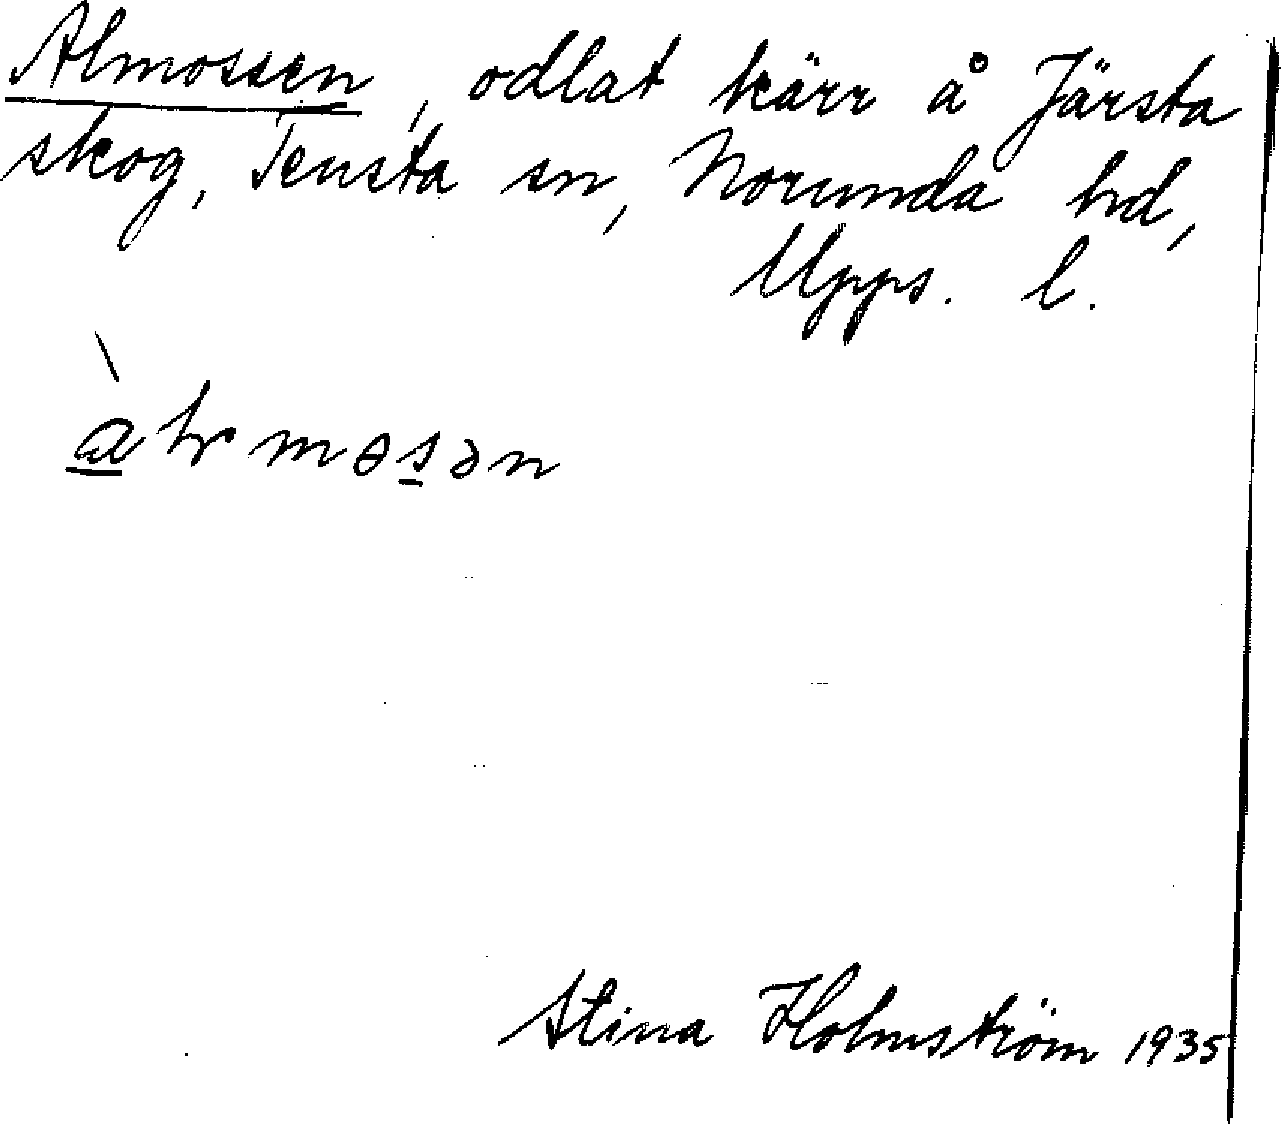 Almossen, odlat kärr å Järsta
skog, Tensta sn, Norunda hd,
Upps. l.
Stina Holmström 1935